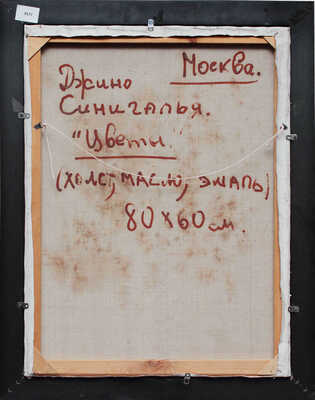 Москва.
Джино
Синигалья.
"Цветы."
(холст, масло, эмаль)
80х60 см.